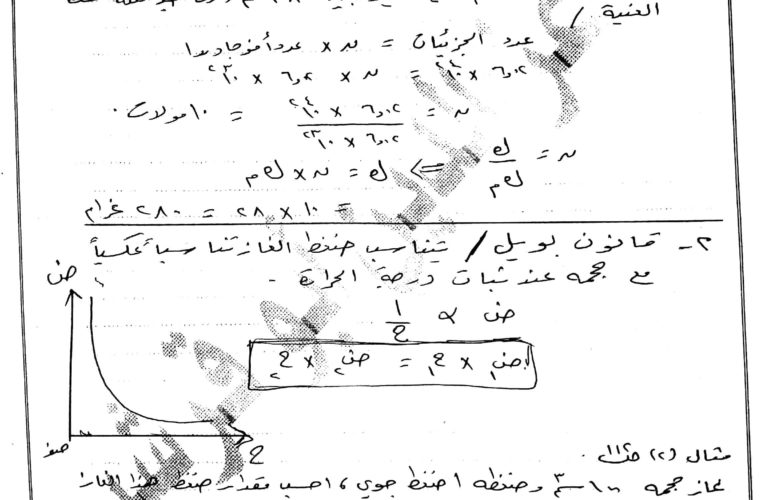 الغنية /
عدد الجزيئات = ن × عدد أفوجادرو
٦,٠٢ × ١٠^٢٤ = ن × ٦,٠٢ × ١٠^٢٣
ن = ٦,٠٢ × ١٠^٢٤ / ٦,٠٢ × ١٠^٢٣ = ١٠ مولات .
ن = ك / ك م => ك = ن × ك م
= ١٠ × ٢٨ = ٢٨٠ غرام
٢- قانون بويل / يتناسب ضغط الغاز تناسباً عكسياً
مع حجمه عند ثبات درجة الحرارة .
ض α ١ / ح
ض١ × ح١ = ض٢ × ح٢
ض
صفر
ح
مثال (٢) ص
غاز حجمه وضغطه ١ ضغط جوي ، احسب مقدار ضغط هذا الغاز